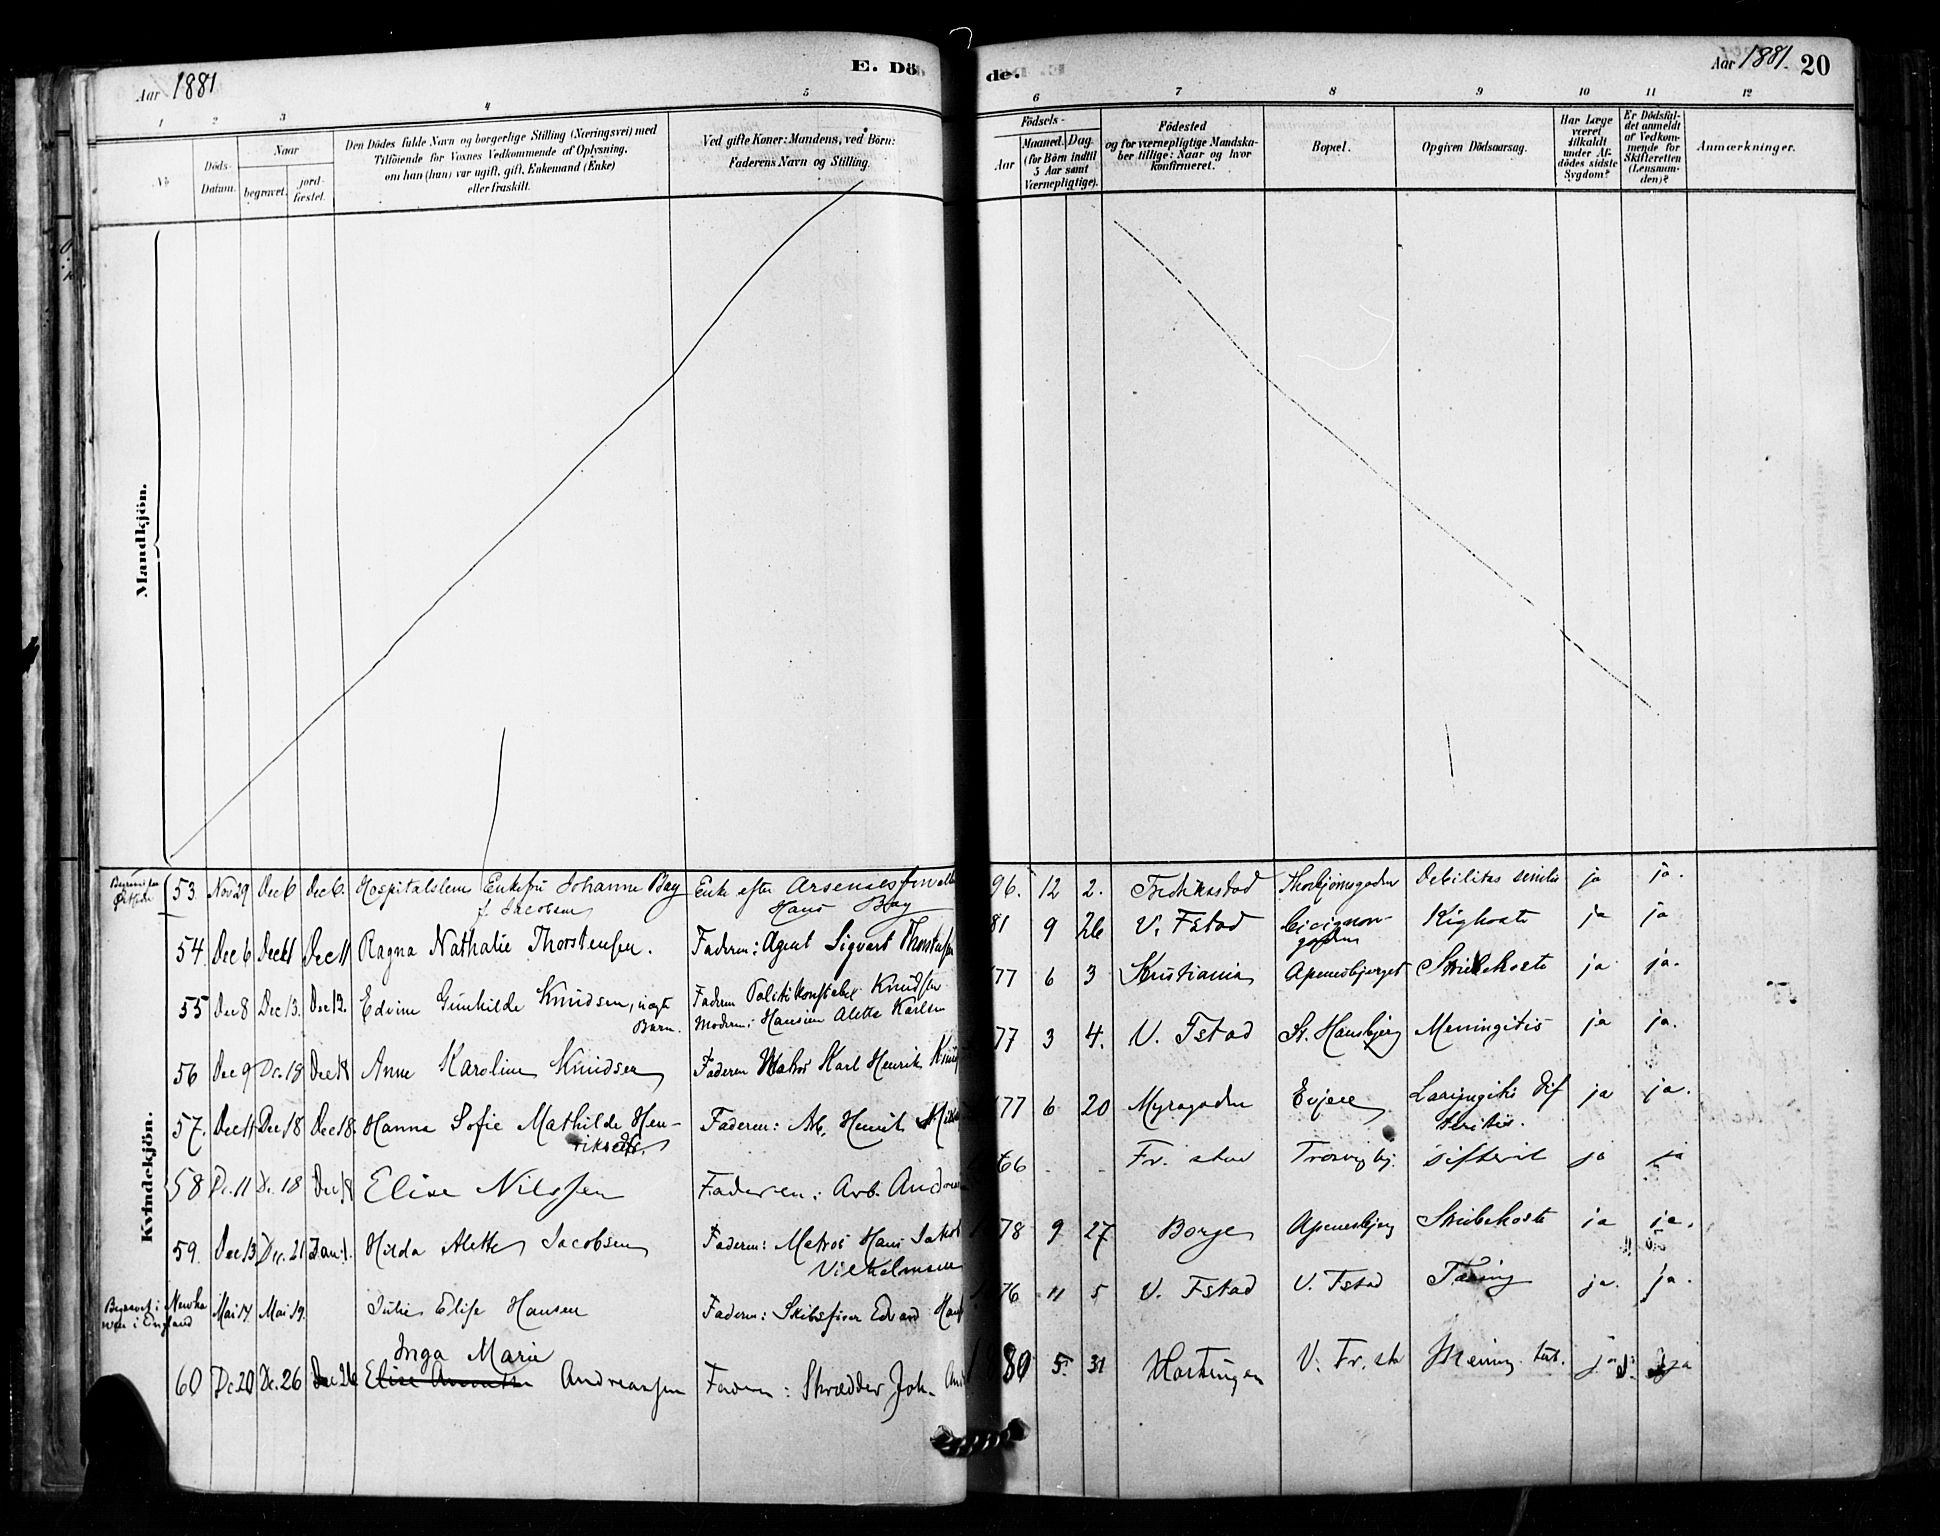 Aar 1881
E. Dö
1 2 3 4 5
No
Döds-
Datum.
Naar
begravet.
jord-
fæstet.
Den Dödes fulde Navn og borgerlige Stilling (Næringsvei) med
Tilföiende for Voxnes Vedkommende af Oplysning,
om han (hun) var ugift, gift, Enkemand (Enke)
eller fraskilt.
Ved gifte Koner: Mandens, ved Börn:
Faderens Navn og Stilling.
Mandkjön.
Kvindekjön.
53 Nov 29 Dec 6 Dec 6. Hospitalslem Enkefru Johanne Bay Enke efter
f. Jacobsen Hans Bay
54 Dec 6 Dec 11 Dec 11 Ragna Nathalie Thorstensen. Faderen: Agent Sigvart Thorstensen
55 Dec 8 Dec 13. Dec 13. Edvine Gunhilde Knudsen, uægte Faderen Politikonstabel Knudsen
Barn. Moderen: Hansine Alette Karlsen
56 Dec 9 Dc. 18 Dec 18 Anne Karoline Knudsen Faderen Matros Karl Henrik
57. Dec 11 Dec 18 Dec 18. Hanna Sofie Mathilde Hen- Faderen: Arb. Henrik
riksen
58 Dc. 11 Dc. 18 Dec 18 Elise Nilssen Faderen: Arb.
59. Dec 13 Dec. 21 Jan. 1. Hilda Alette Jacobsen Faderen: Matros Hans Jakob
Vilhelmsen
Begravet i Newha
ven i England
Mai 14 Mai 19. Julie Elise Hansen Faderen: Skibsfører Edvard
Inga Marie
60 Dc 20 Dc. 26 Dec 26 Andreassen Faderen: Skrædder Joh.
de.
Aar 1881. 20
6 7 8 9 10 11 12
Födsels-
Aar
Maaned. Dag.
(for Börn indtil
5 Aar samt
Værnepligtige).
Födested
og for værnepligtige Mandska-
ber tillige: Naar og hvor
konfirmeret.
Bopæl.
Opgiven Dödsaarsag.
Har Læge
været
tilkaldt
under Af-
dödes sidste
Sygdom?
Er Dödsfal-
det anmeldt
af Vedkom-
mende for
Skifteretten
(Lensman-
den)?
Anmærkninger.
96. 12 2. Fredrikstad Thorbjørnsgaden Debilitas senilis ja ja.
81 9 26 V. Fstad Kighoste ja ja
77 6 3 Kristiania Apenesbjerget Strubehoste ja ja.
77 3 4. V. Fstad St. Hansbjerg Meningitis ja ja.
77 6 20 Myragaden Evjene Laryngitis dif ja ja.
teritis.
66 - - Fr. stad Trosvigbj. difterit ja ja
78 9 27 Borge Apenesbjerg Strubehoste ja ja.
76 11 5 V. Fstad V. Fstad Tæring ja. ja.
80 5. 31 V. Fr. sta Mening. tub. ja ja